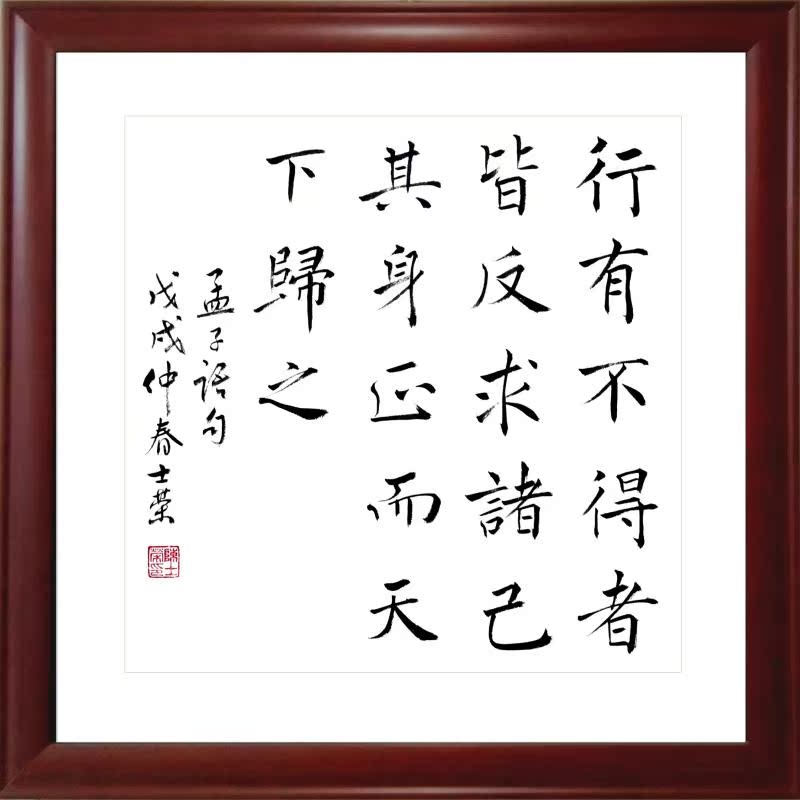 行有不得者
皆反求諸己
其身正而天
下歸之
孟子語句
戊戌仲春士榮